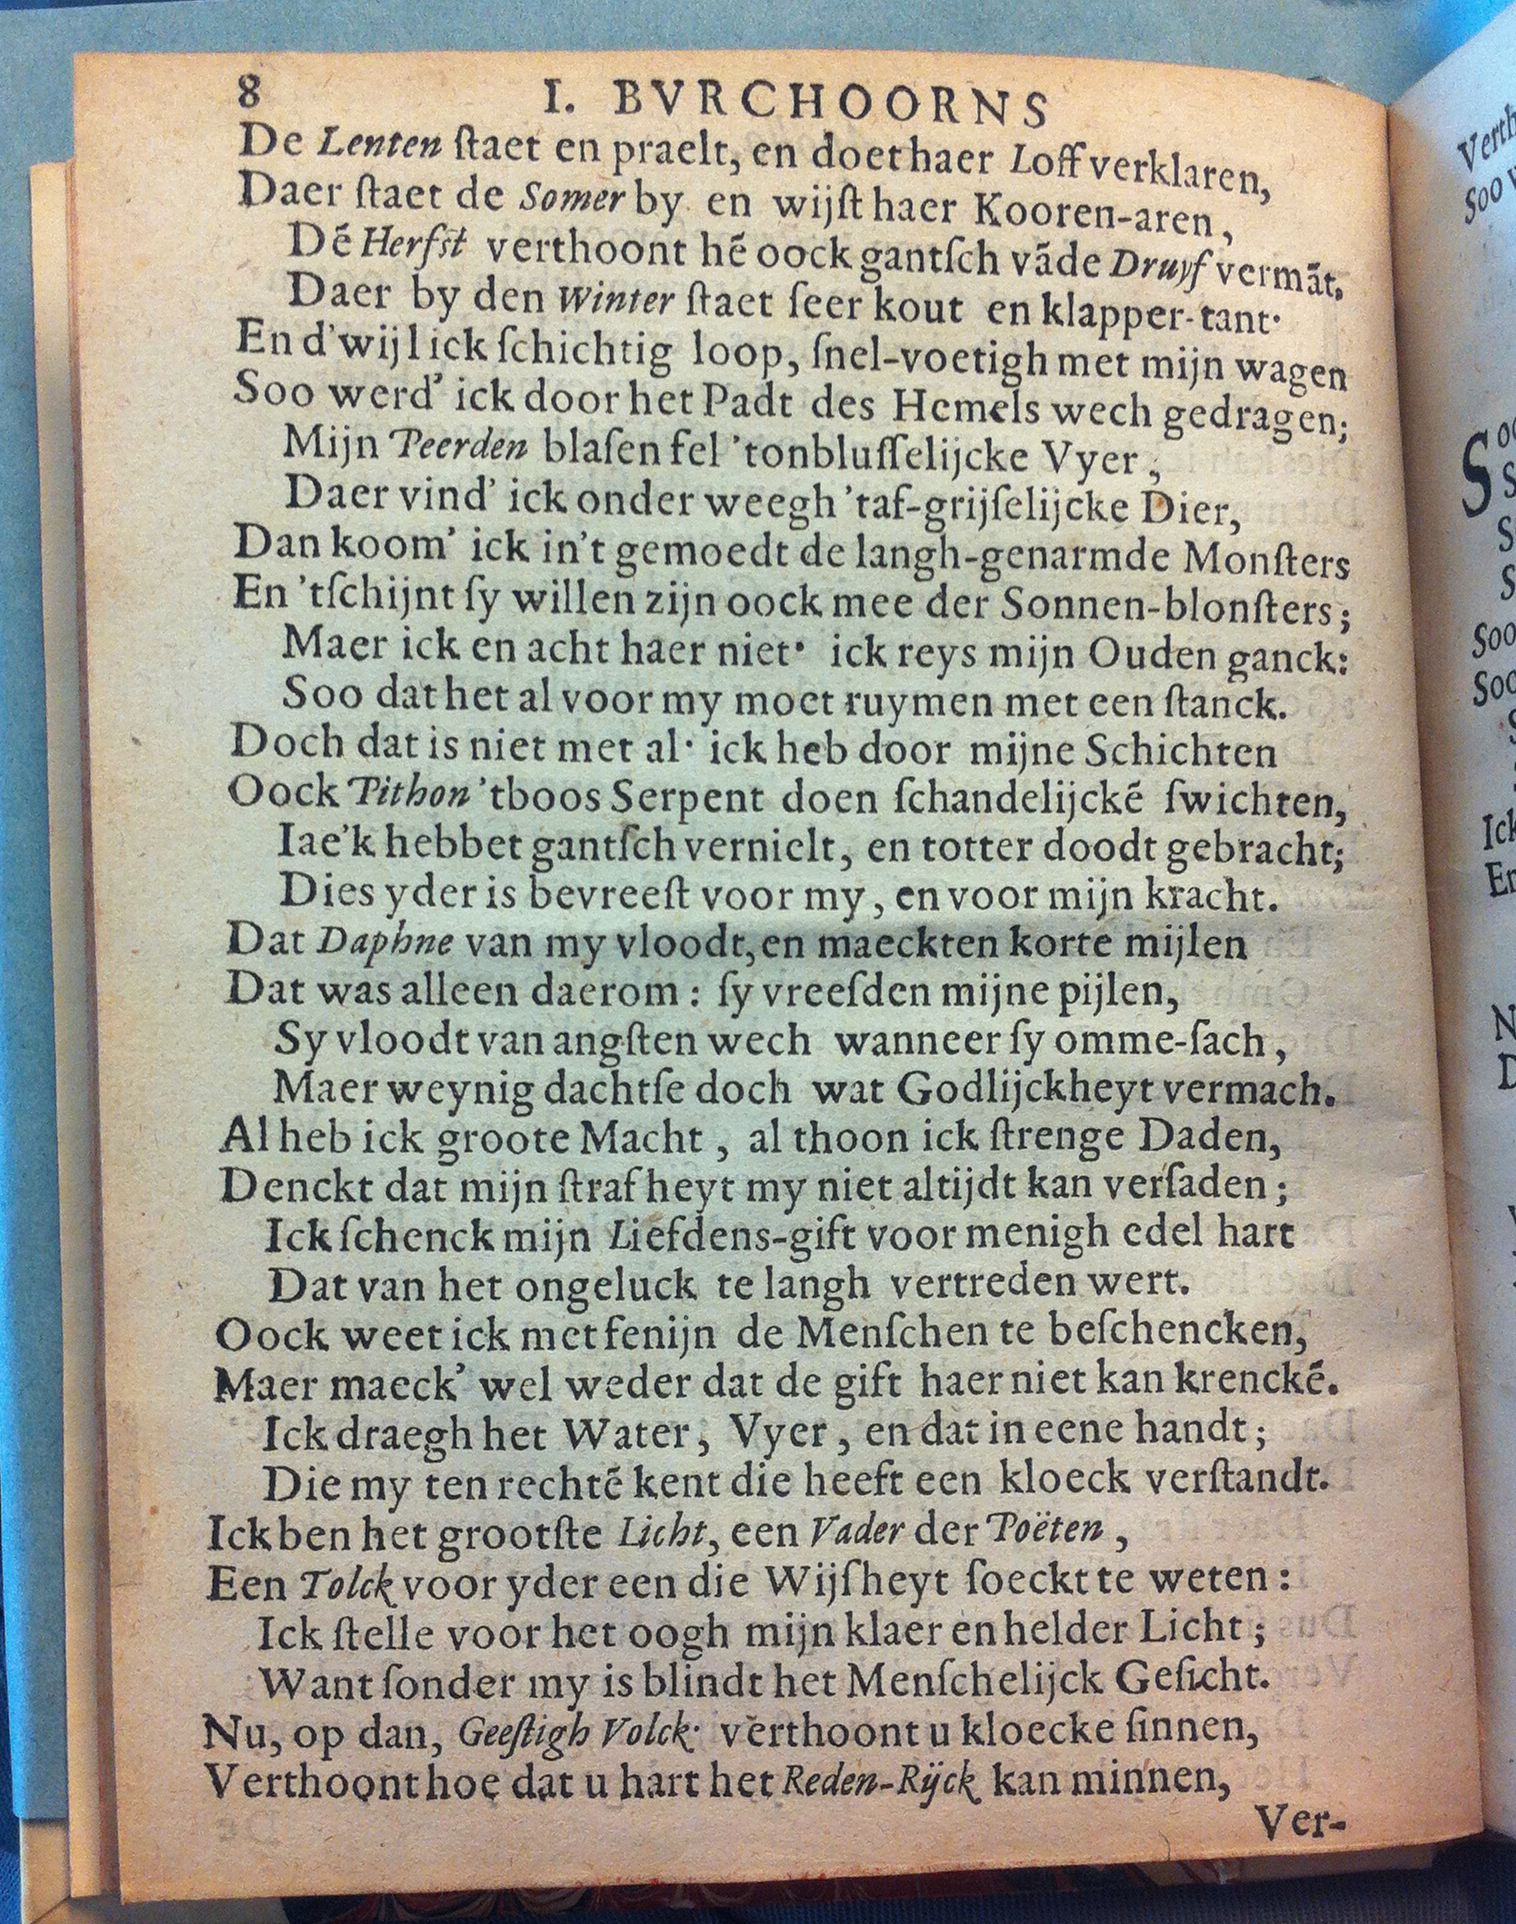 8 I. BVRCHOORNS
De Lenten ſtaet en praelt, en doet haer Loff verklaren,
Daer ſtaet de Somer by en wijſt haer Kooren-aren,
Dẽ Herfſt verthoont hẽ oock gantſch vãde Druyf vermãt.
Daer by den Winter ſtaet ſeer kout en klapper-tant·
En d'wijl ick ſchichtig loop, ſnel-voetigh met mijn wagen
Soo werd' ick door het Padt des Hemels wech gedragen;
Mijn Peerden blaſen fel 'tonbluſſelijcke Vyer,
Daer vind' ick onder weegh 'taf-grijſelijcke Dier,
Dan koom' ick in't gemoedt de langh-genarmde Monſters
En 'tſchijnt ſy willen zijn oock mee der Sonnen-blonſters;
Maer ick en acht haer niet· ick reys mijn Ouden ganck:
Soo dat het al voor my moet ruymen met een ſtanck.
Doch dat is niet met al· ick heb door mijne Schichten
Oock Pithon 'tboos Serpent doen ſchandelijckẽ ſwichten,
Iae'k hebbet gantſch vernielt, en totter doodt gebracht;
Dies yder is bevreeſt voor my, en voor mijn kracht.
Dat Daphne van my vloodt, en maeckten korte mijlen
Dat was alleen daerom: ſy vreeſden mijne pijlen,
Sy vloodt van angſten wech wanneer ſy omme-ſach,
Maer weynig dachtſe doch wat Godlijckheyt vermach.
Al heb ick groote Macht, al thoon ick ſtrenge Daden,
Denckt dat mijn ſtrafheyt my niet altijdt kan verſaden;
Ick ſchenck mijn Liefdens-gift voor menigh edel hart
Dat van het ongeluck te langh vertreden wert.
Oock weet ick met fenijn de Menſchen te beſchencken,
Maer maeck' wel weder dat de gift haer niet kan krenckẽ.
Ick draegh het Water, Vyer, en dat in eene handt;
Die my ten rechtẽ kent die heeft een kloeck verſtandt.
Ick ben het grootſte Licht, een Vader der Poëten,
Een Tolck voor yder een die Wijſheyt ſoeckt te weten:
Ick ſtelle voor het oogh mijn klaer en helder Licht;
Want ſonder my is blindt het Menſchelijck Geſicht.
Nu, op dan, Geeſtigh Volck· verthoont u kloecke ſinnen,
Verthoont hoe dat u hart het Reden-Rijck kan minnen,
Ver-